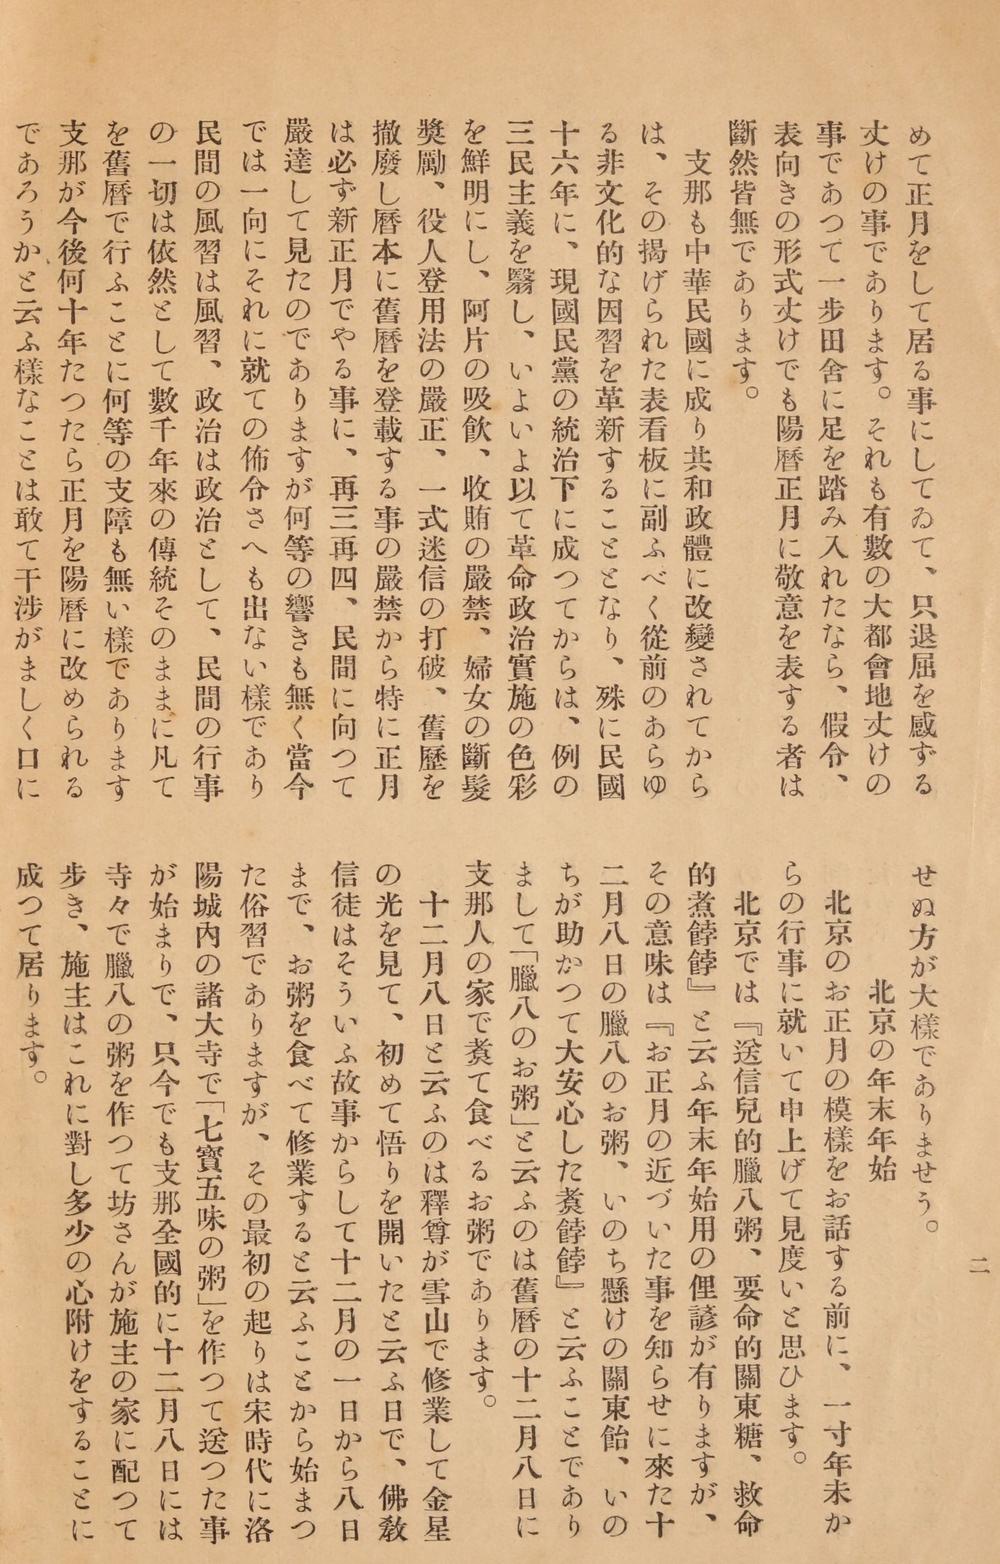 めて正月をして居る事にしてゐて、只退屈を感ずる
丈けの事であります。それも有數の大都會地丈けの
事であつて一步田舍に足を踏み入れたなら、假令、
表向きの形式丈けでも陽曆正月に敬意を表する者は
斷然皆無であります。
支那も中華民國に成り共和政體に改變されてから
は、その揭げられた表看板に副ふべく從前のあらゆ
る非文化的な因習を革新することとなり、殊に民國
十六年に、現國民黨の統治下に成つてからは、例の
三民主義を翳し、いよいよ以て革命政治實施の色彩
を鮮明にし、阿片の吸飮、收賄の嚴禁、婦女の斷髮
奬勵、役人登用法の嚴正、一式迷信の打破、舊歷を
撤廢し曆本に舊曆を登載する事の嚴禁から特に正月
は必ず新正月でやる事に、再三再四、民間に向つて
嚴達して見たのでありますが何等の響きも無く當今
では一向にそれに就ての佈令さへも出ない樣であり
民間の風習は風習、政治は政治として、民間の行事
の一切は依然として數千年來の傳統そのままに凡て
を舊曆で行ふことに何等の支障も無い樣であります
支那が今後何十年たつたら正月を陽曆に改められる
であろうかと云ふ樣なことは敢て干涉がましく口に
せぬ方が大樣でありませう。
北京の年末年始
北京のお正月の模樣をお話する前に、一寸年末か
らの行事に就いて申上げて見度いと思ひます。
北京では『送信兒的臘八粥、要命的關東糖、救命
的煮餑餑』と云ふ年末年始用の俚諺が有りますが、
その意味は『お正月の近づいた事を知らせに來た十
二月八日の臘八のお粥、いのち懸けの關東飴、いの
ちが助かつて大安心した煮餑餑』と云ふことであり
まして「臘八のお粥」と云ふのは舊曆の十二月八日に
支那人の家で煮て食べるお粥であります。
十二月八日と云ふのは釋尊が雪山で修業して金星
の光を見て、初めて悟りを開いたと云ふ日で、佛敎
信徒はそういふ故事からして十二月の一日から八日
まで、お粥を食べて修業すると云ふことから始まつ
た俗習でありますが、その最初の起りは宋時代に洛
陽城內の諸大寺で「七寳五味の粥」を作つて送つた事
が始まりで、只今でも支那全國的に十二月八日には
寺々で臘八の粥を作つて坊さんが施主の家に配つて
步き、施主はこれに對し多少の心附けをすることに
成つて居ります。
二